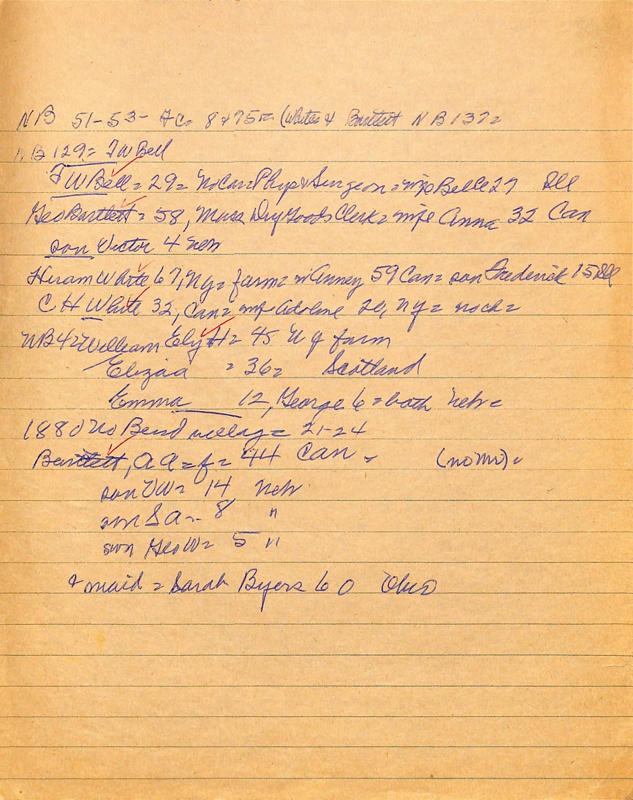 NB 51-53- Ac= 8475= (White & Bartlett NB 137=
NB 129= TWBell
TWBell= 29= NoCar= Phys & Surgeon= wife Belle 27 Ill
Geo Bartlett= 58, Mass Dry Goods Clerk= wife Anna 32 Can
son Victor 4 Neb
Hiram White 67, Ny= farm= 59 Can= son Frederick 15 Ill
C H White 32, Can= wife Adoline 20, NY= no ch=
NB 4= William Ely H= 45 Ny farm
Elizaa = 36= Scotland
Emma 12, George 6= both Neb=
1880 No Bend village= 21-24
Bartlett, AA= f= 44 Can - (no Mr)=
son VW= 14 Neb
son S A- 8 "
son GeoW= 5 "
& maid= Sarah Byers 60 Ohio